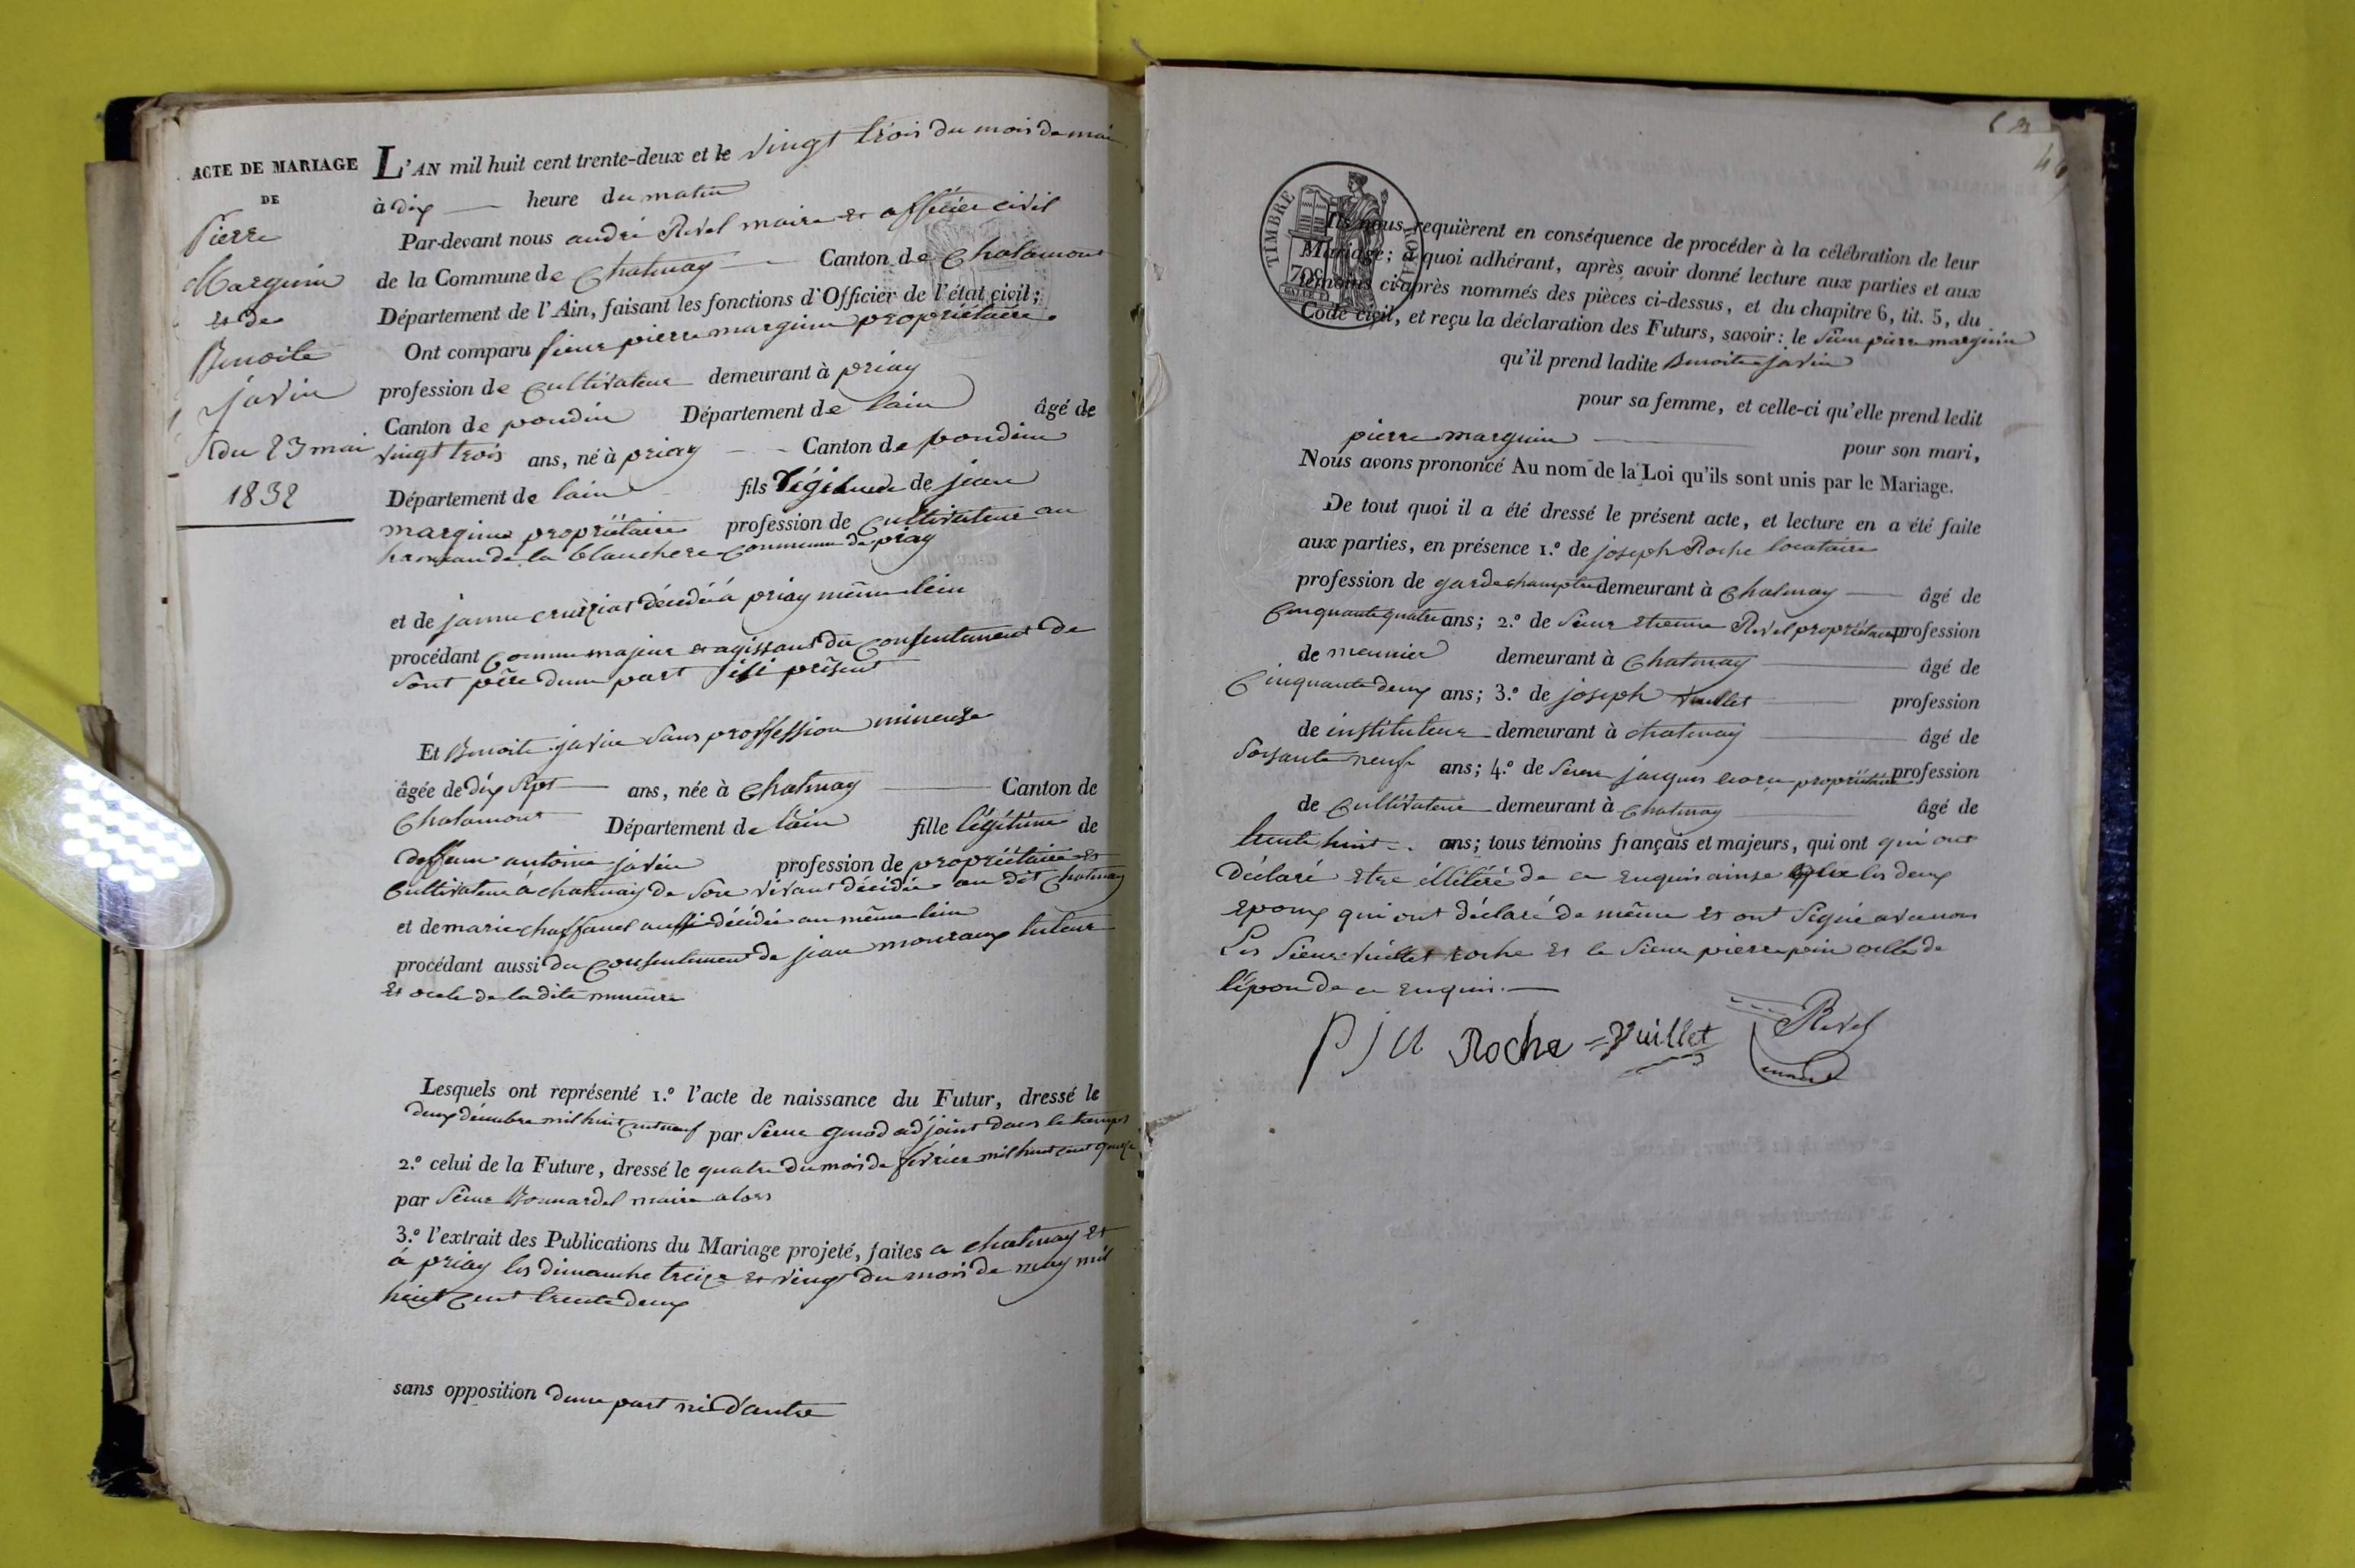 ACTE DE MARIAGE
DE
Pierre
Marguin
et de
Benoite
javin
du 23 mai
1832
L'AN mil huit cent trente-deux et le vingt trois du mois de mai
à dix heure du matin
Par-devant nous andré Revel maire et officier civil
de la Commune de Chatenay Canton de Chalamont
Département de l'Ain, faisant les fonctions d'Officier de l'état civil;
Ont comparu sieur pierre marguin propriétaire
profession de Cultivateur demeurant à priay
Canton de pondin Département de lain âgé de
vingt trois ans, né à priay Canton de pondin
Département de lain fils légitime de jean
marguin propriétaire profession de Cultivateur au
hameau de la blanchere Commune de priay
et de janne décédé à priay même lein
procédant Comme majeur et agissant du Consentement de
sont père dune part présent
Et Benoite javin sans proffession mineuse
âgée de dix sept ans, née à Chatenay Canton de
Chalamont Département de lain fille légitime de
deffeun antoine javin profession de propriétaire et
Cultivateur à chatenay de son vivant décédé au dit Chatenay
et de marie chaffanel aussi décédée au même lein
procédant aussi du Consentement de jean monraux tuteur
et de la dite mineure
Lesquels ont représenté 1.º l'acte de naissance du Futur, dressé le
deux décembre mil huit cent neuf par sieur adjoint dans le temps
2.º celui de la Future, dressé le quatre du mois de février mil huit cent quinze
par sieur Bonnardel maire alors
3.º l'extrait des Publications du Mariage projeté, faites a chatenay et
à priay les dimanche treize et vingt du mois de may mil
huit Cent trente deux
sans opposition dune part ni d'autre
TIMBRE ROYAL
70c
Ils nous requièrent en conséquence de procéder à la célébration de leur
Mariage; à quoi adhérant, après avoir donné lecture aux parties et aux
témoins ci-après nommés des pièces ci-dessus, et du chapitre 6, tit. 5, du
Code civil, et reçu la déclaration des Futurs, savoir: le sieur pierre marguin
qu'il prend ladite Benoite javin
pour sa femme, et celle-ci qu'elle prend ledit
pierre marguin pour son mari,
Nous avons prononcé Au nom de la Loi qu'ils sont unis par le Mariage.
De tout quoi il a été dressé le présent acte, et lecture en a été faite
aux parties, en présence 1.º de joseph Roche locataire
profession de garde champtre demeurant à Chatenay âgé de
Cinquante quatre ans; 2.º de sieur etienne Revel propriétaire profession
de meunier demeurant à Chatenay âgé de
Cinquante deux ans; 3.º de joseph vuillet profession
de instituteur demeurant à chatenay âgé de
soisante neuf ans; 4.º de sieur jacques propriétaire profession
de Cultivateur demeurant à Chatenay âgé de
trente huit ans; tous témoins français et majeurs, qui ont qui ont
déclaré etre illitéré de ce enquis ainse que les deux
epoux qui ont déclaré de même et ont signé avec nous
Les sieurs vuillet roche et le sieur pierre
de ce enquis.
Roche = Vuillet Revel
maire